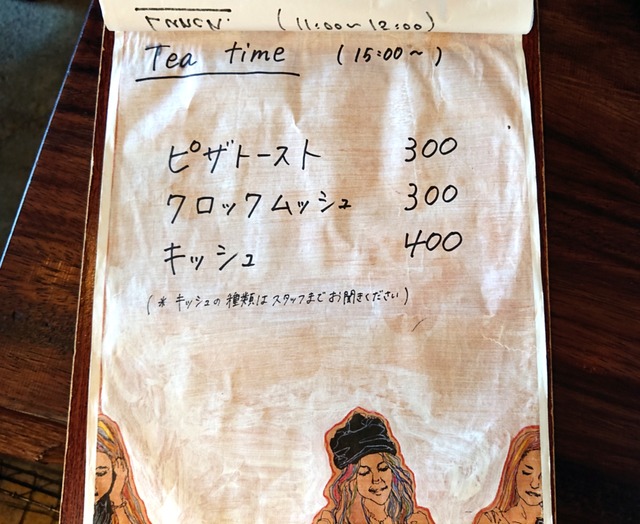 (11:00〜12:00)
Tea time (15:00〜)
ピザトースト 300
クロックムッシュ 300
キッシュ 400
(※ キッシュの種類はスタッフまでお聞きください)